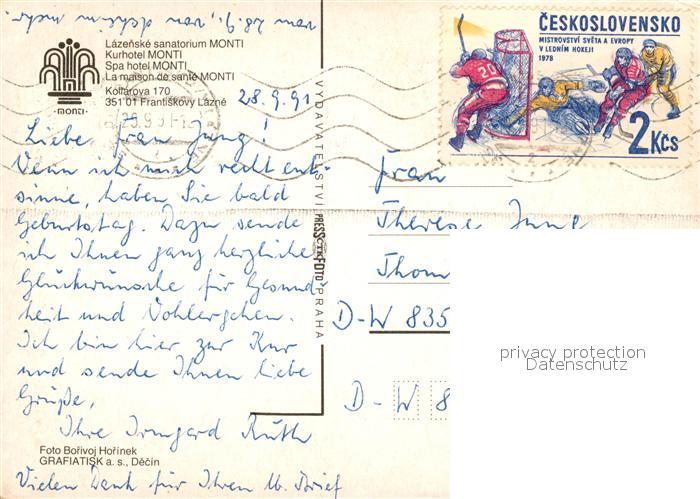 Lázeňské sanatorium MONTI
Kurhotel MONTI
Spa hotel MONTI
La maison de santé MONTI
Kollárova 170
351 01 Františkovy Lázně
·MONTI·
28.9.91
Liebe Frau Jung!
Wenn ich mich recht ent-
sinne, haben Sie bald
Geburtstag. Dazu sende
ich Ihnen ganz herzliche
Glückwünsche für Gesund-
heit und Wohlergehen.
Ich bin hier zur Kur
und sende Ihnen liebe
Grüße,
Ihre Irmgard Ruth
Foto Bořivoj Hořínek
GRAFIATISK a. s., Děčín
Vielen Dank für Ihren lb. Brief
vom 28.9.,
VYDAVATELSTVÍ PRESSFOTO PRAHA
ČESKOSLOVENSKO
MISTROVSTVÍ SVĚTA A EVROPY
V LEDNÍM HOKEJI
1978
20
2 Kčs
Frau
Therese Jung
Thom
D-W 835
D-W 8
privacy protection
Datenschutz